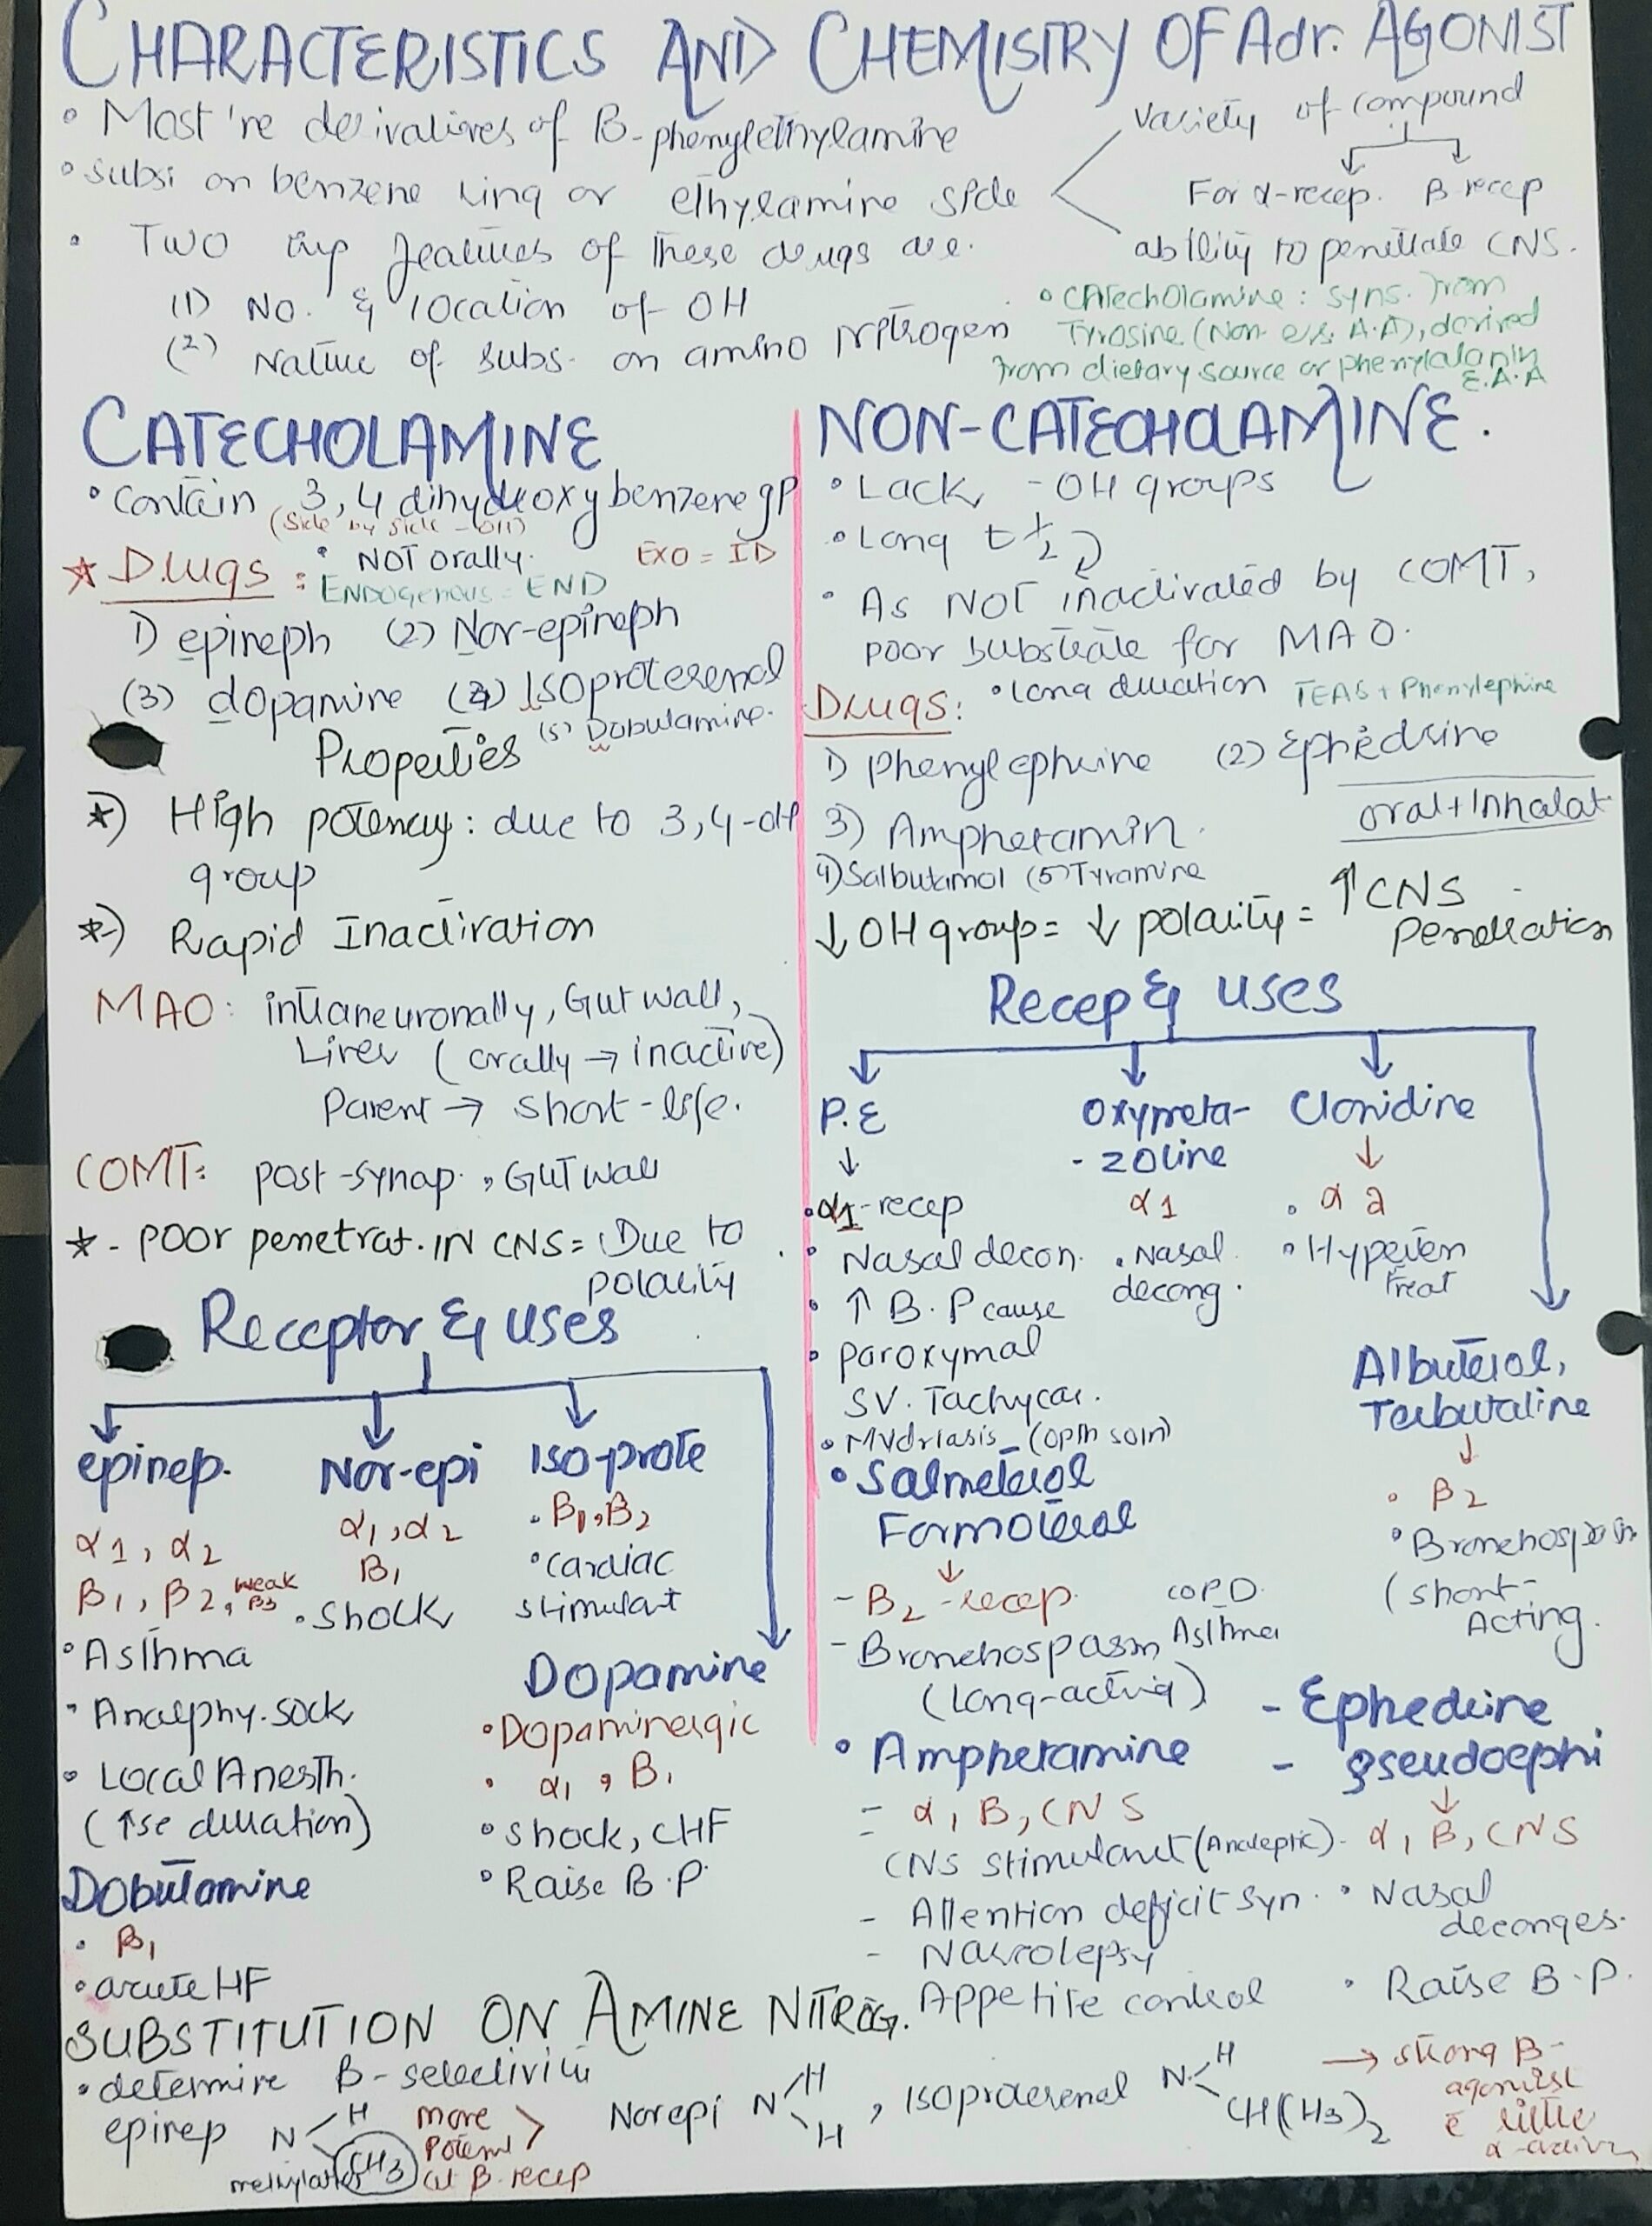 CHARACTERISTICS AND CHEMISTRY OF Adr. AGONIST
• Most 're derivatives of B-phenylethylamine
• subsi on benzene ring or ethylamine side
Variety of compound
For α-recep. B recep
ability to penetrate CNS.
• Two imp features of these drugs are.
(1) No. & location of OH
(2) Nature of subs. on amino nitrogen
• CATechOlamine: syns. from
Tyrosine (Non-ess. A.A), derived
from dietary source or phenylalanin
E.A.A
CATECHOLAMINE
• Contain 3,4 dihydroxy benzene gp
(side by side -OH)
• NOT orally.
EXO = ID
* Drugs :
ENDOgenous = END
1) epineph (2) Nor-epineph
(3) dopamine (4) Isoproterenol
(5) Dobutamine.
Properties
*) High potency: due to 3,4-OH
group
*) Rapid Inactivation
MAO: intraneuronally, Gut wall,
Liver (orally → inactive)
Parent → short-life.
COMT: post-synap., GUT wall
* - Poor penetrat. IN CNS = Due to
polarity
Receptor & uses
epinep.
α1, α2
B1, B2, weak B3
• Asthma
• Analphy. sock
• Local Anesth.
(↑se duration)
Nor-epi
α1, α2
B1
• Shock
Iso-prote
• B1, B2
• cardiac
stimulant
Dopamine
• Dopaminergic
• α1, B1
• shock, CHF
• Raise B.P
Dobutamine
• B1
• acute HF
NON-CATECHOLAMINE.
• Lack -OH groups
• Long t½
• As NOT inactivated by COMT,
poor substrate for MAO.
• Long duration TEAS + Phenylephine
Drugs:
1) Phenylephrine (2) Ephedrine
3) Amphetamin.
oral + Inhalat
4) Salbutamol (5) Tyramine
↓ OH group = ↓ polarity = ↑ CNS
Penetration
Recep & uses
P.E
↓
• α1-recep
• Nasal decon.
• ↑ B.P cause
• paroxymal
SV. Tachycar.
• Mydriasis - (opth soln)
Oxymeta-
- zoline
α1
• Nasal
decong.
Clonidine
↓
• α 2
• Hyperten
treat
Albuterol,
Terbutaline
↓
• B2
• Bronchospasm
(short-
Acting.
• Salmeterol
Formoterol
↓
- B2-recep.
COPD
Asthma
- Bronchospasm
(Long-acting)
• Amphetamine
- α, B, CNS
- CNS stimulant (Analeptic)
- Attention deficit syn.
- Narcolepsy
Appetite control
- Ephedrine
- pseudoephi
↓
- α, B, CNS
• Nasal
deconges.
• Raise B.P.
SUBSTITUTION ON AMINE NITROG.
• determine B-selectivity
epinep N H CH3
methylated
more
potent >
at B-recep
Norepi N H H , Isoproterenol N H CH(CH3)2
→ strong B-
agonist
c̄ little
α-activity